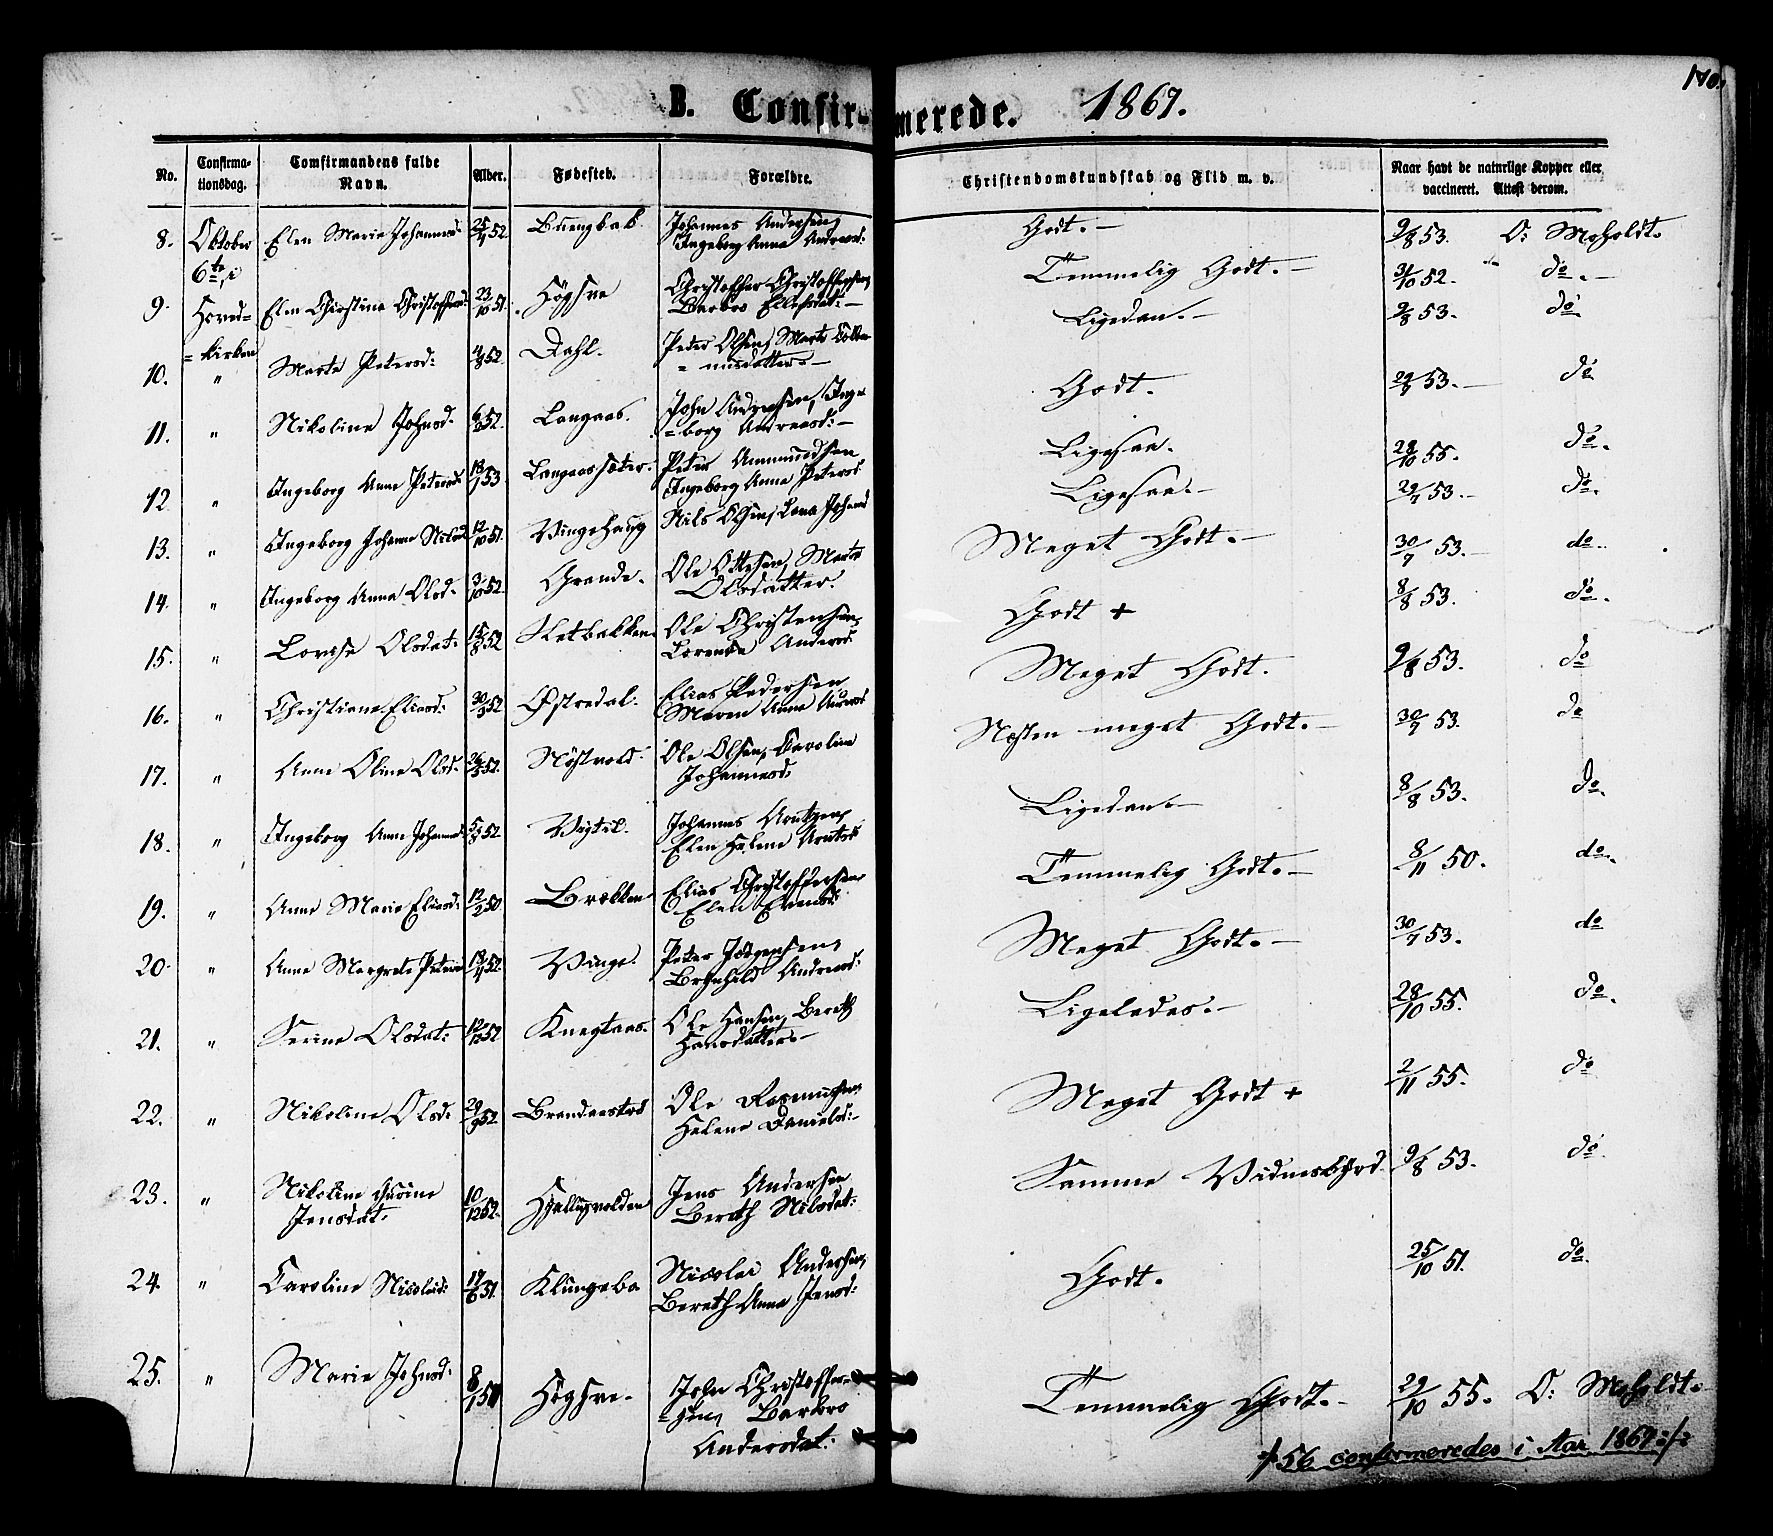 170.
B. Confir- merede. 1867.
No. Confirma-tionsdag. Comfirmandens fulde Navn. Alder. Fødested. Forældre. Christendomskundskab og Flid m. v. Naar havt de naturlige Kopper eller vaccineret. Attest derom.
8. Oktober 6te i Elen Marie Johannesd: Buengbak Johannes Andersen, Ingeborg Anna Andreasd: Godt. — 9/8 53. O: Moholdt.
9. Hoved= =kirken Elen Christine Christoffersd: 23/10 51. Högsve Christoffer Christoffersen, Barbro Ellefsdat: — Temmelig Godt. — 31/10 52. do. —
10. " Marte Petersd: Dahl. Peder Olsen, Marte = mensdatter. — Ligedan. — 9/8 53. do
11. " Nikoline Johnsd: Langaas. John Andersen, Inge= =borg Andreasd: — Godt. 29/7 53. — do
12. " Ingeborg Anne Petersd: 18/1 53. Langaassæter. Peter Ammundsen, Ingeborg Anna Petersd: Ligesaa. 28/10 55. do.
13. " Ingeborg Johanna Nilsd: 12/10 51. Vingehaug Nils Olsen, Lena Johansd: Ligesaa. — 29/7 53. — do.
14. " Ingeborg Anna Olsd: 3/10 52. Grande. Ole Ottesen, Marte Olsdatter. Meget Godt. — 30/7 53. — do.
15. " Lovise Olsdat: 15/8 52 Sletbakken Ole Christensen, Lorense Andersd: Godt + 8/8 53. do.
16. " Christiane Eliasd: 30/3 52 Østredal: Elias Pedersen, Maren Anna Meget Godt. 9/8 53. do
17. " Anne Oline Olsd: 26/3 52. Nöstvold Ole Olsen, Karoline Johannesd: Næsten meget Godt. — 30/7 53. do
18. " Ingeborg Anne Johannesd: Vigtil. Johannes Arntzen, Elen Helene Arntsd: Ligedan. — 8/8 53. do.
19. " Anne Marie Eliasd: 12/2 50 Brækken Elias Christoffersen, Elen Evensd: Temmelig Godt. — 8/11 50. do.
20. " Anne Margrete Petersd: 18/11 52. Vinge. Peter Jörgensen, Brynhild Andreasd: Meget Godt. — 30/7 53. do
21. " Serine Olsdat: 12/12 52 Knegtaas. Ole Hansen, Bereth Hansdatter. — Ligeledes. — 28/10 55. do.
22. " Nikoline Olsd: 29/9 52. Brandaaströ Ole Rasmussen, Helene Danielsd: — Meget Godt + 2/11 55. do
23. " Nikoline Gurine Jensdat. 10/12 52. Hjallupvolden Jens Andersen Bereth Nilsdat: Samme Vidnesbyrd. 9/8 53. do.
24. " Caroline Nicolaid: Klungebo Nicolai Andersen, Bereth Anna Jensd: Godt. 25/10 51. do.
25. " Marie Johnsd: Högsve. John Christoffer= =sen, Barbro Andersdat: Temmelig Godt. — 29/10 55. O: Moholdt.
/: 56 confirmeredes i Aar 1867 :/: